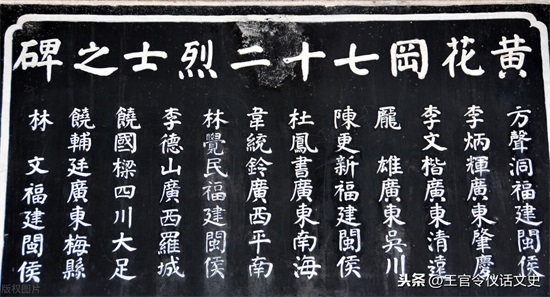 黃花岡七十二烈士之碑
方聲洞福建閩侯
李炳輝廣東肇慶
李文楷廣東清遠
龐雄廣東吳川
陳更新福建閩侯
杜鳳書廣東南海
韋統鈴廣西平南
林覺民福建閩侯
李德山廣西羅城
饒國樑四川大足
饒輔廷廣東梅縣
林文福建閩侯
版权图片
头条@王官令仪话文史